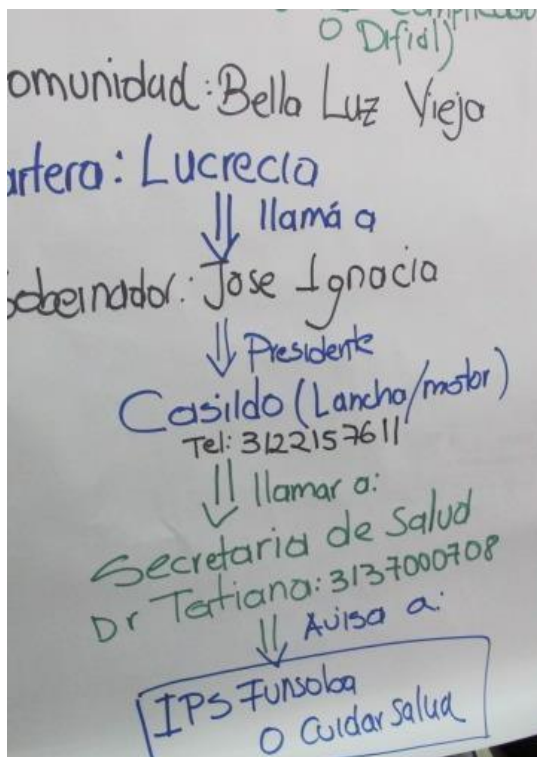 O Difícil)
omunidad: Bella Luz Vieja
artera: Lucrecia
llamá a
obernador: Jose Ignacio
Presidente
Casildo (Lancha/motor)
Tel: 3122157611
llamar a:
Secretaria de Salud
Dr Tatiana: 3137000708
Avisa a:
IPS Funsoba
O Cuidar salud